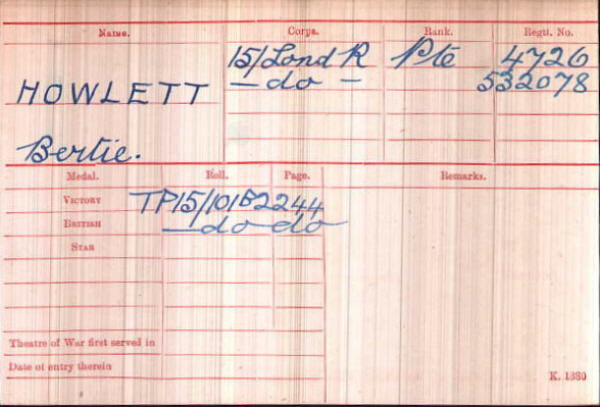 Name. Corps. Rank. Regtl. No.
15/Lond R Pte 4726
HOWLETT — do — 532078
Bertie.
Medal. Roll. Page. Remarks.
VICTORY TP15/101B2 2244
BRITISH — do do
STAR
Theatre of War first served in
Date of entry therein
K. 1380